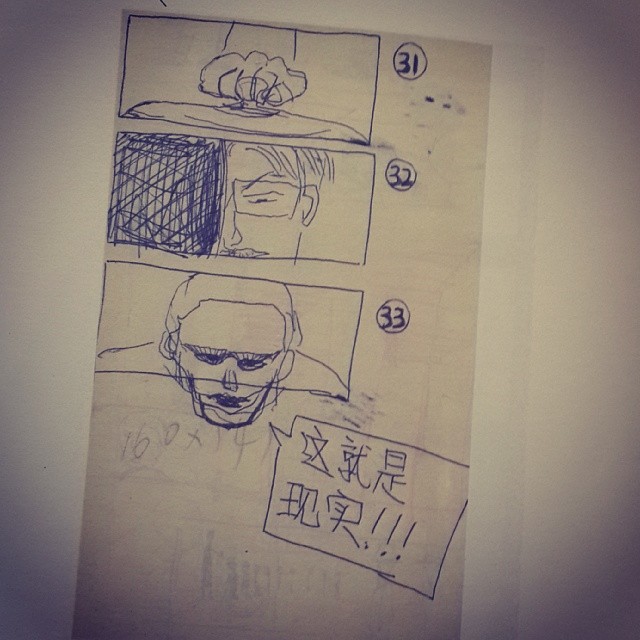 31
32
33
160×14
这就是
现实!!!